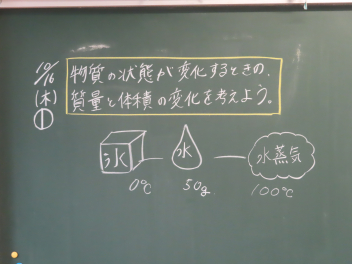 10/16
(木)
①
物質の状態が変化するときの、
質量と体積の変化を考えよう。
氷
水
水蒸気
0℃
50g
100℃